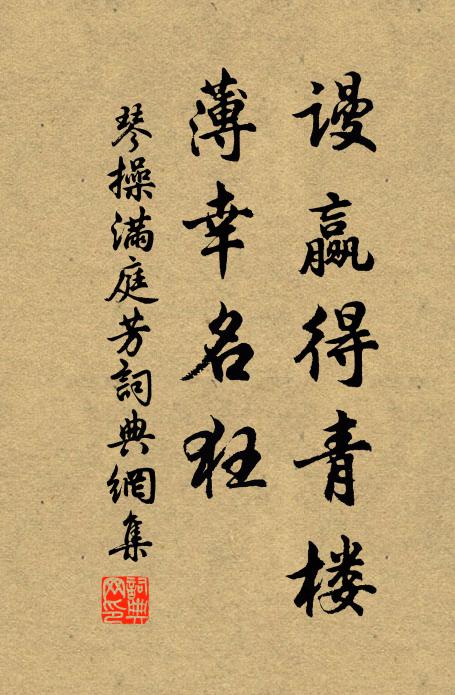 谩赢得青楼
薄幸名狂
琴操满庭芳詞典網集
詞典网印